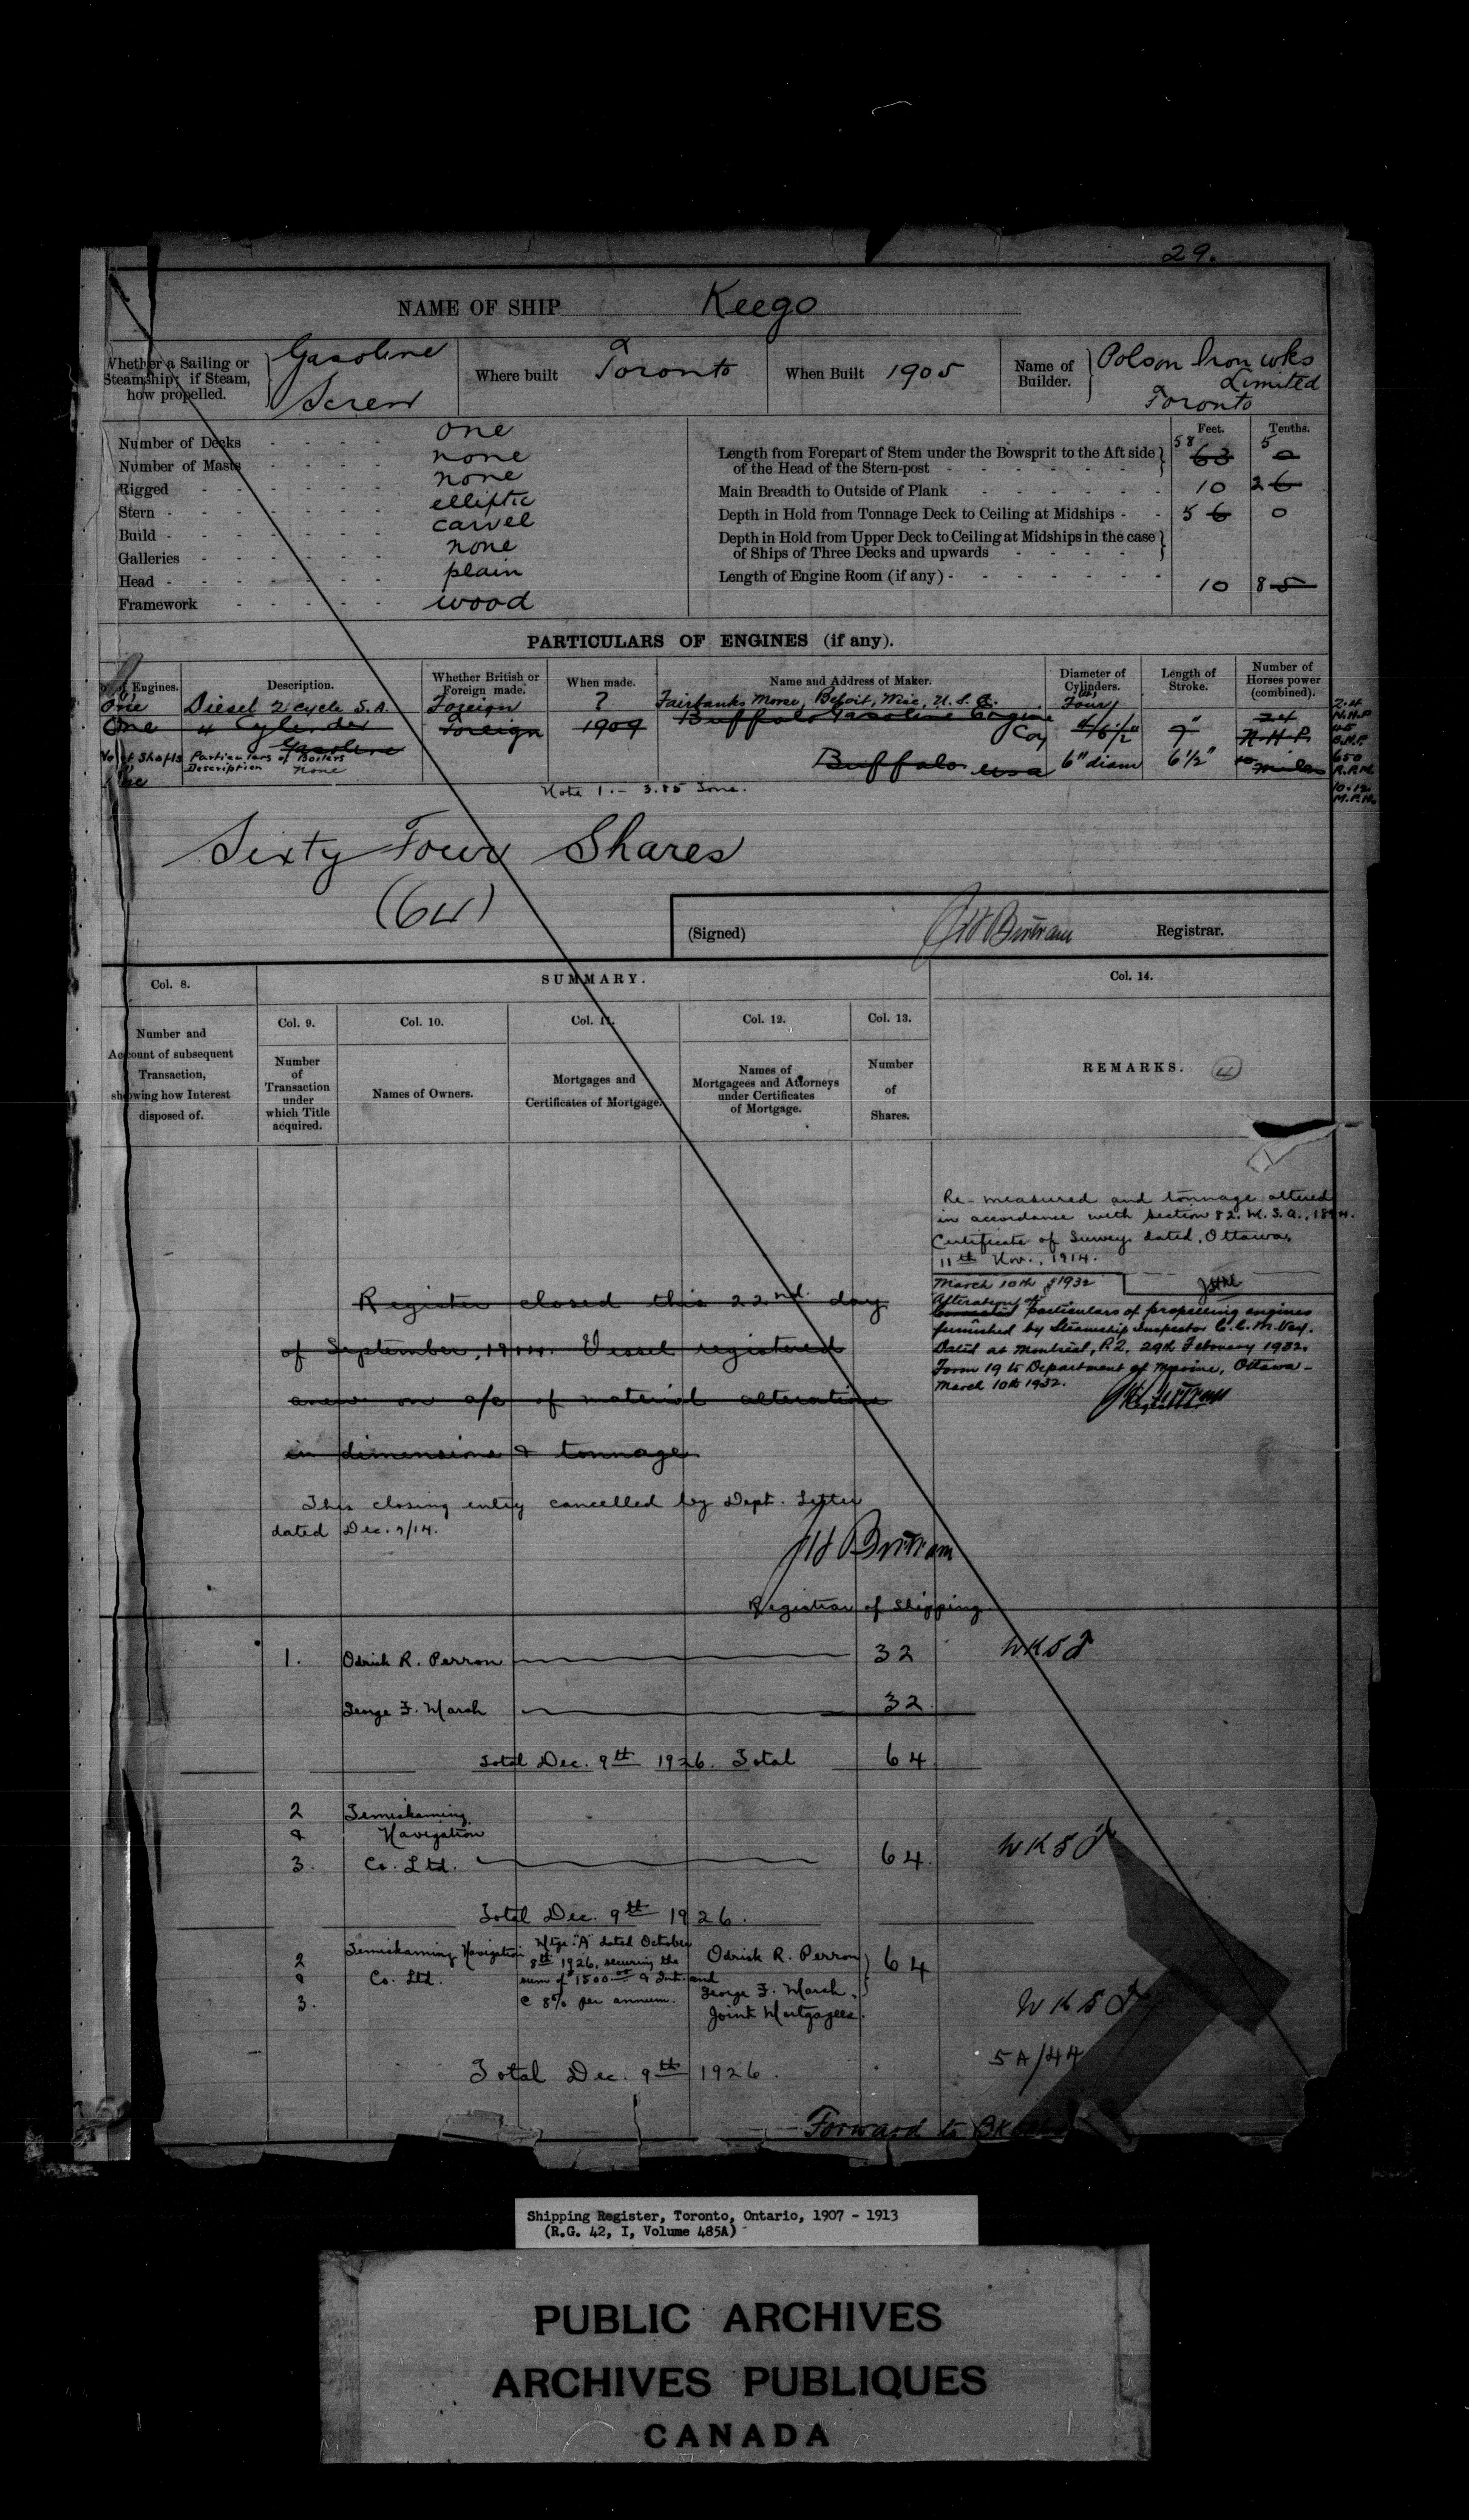 29.
NAME OF SHIP Keego
Whether a Sailing or Steamship; if Steam, how propelled. Gasoline Screw
Where built Toronto
When Built 1905
Name of Builder. Polson Iron wks Limited Toronto
Number of Decks - - - - one
Number of Masts - - - - none
Rigged - - - - - none
Stern - - - - - - elliptic
Build - - - - - - carvel
Galleries - - - - - none
Head - - - - - - plain
Framework - - - - - wood
Feet. Tenths.
Length from Forepart of Stem under the Bowsprit to the Aft side of the Head of the Stern-post - 58 63 5 0
Main Breadth to Outside of Plank - 10 2 6
Depth in Hold from Tonnage Deck to Ceiling at Midships - - 5 6 0
Depth in Hold from Upper Deck to Ceiling at Midships in the case of Ships of Three Decks and upwards
Length of Engine Room (if any) - 10 8 5
PARTICULARS OF ENGINES (if any).
of Engines. Description. Whether British or Foreign made. When made. Name and Address of Maker. Diameter of Cylinders. Length of Stroke. Number of Horses power (combined).
One Diesel 2 cycle S.A. Foreign ? Fairbanks Morse, Beloit, Wis, U.S.A. Four
One 4 Cylinder Foreign 1909 Buffalo Gasoline Engine Coy 9" 24 N.H.P.
Gasoline
No of Shafts Particulars of Boilers
Description none
Buffalo usa 6" diam 6½"
2.4
N.H.P.
45
B.H.P.
650
R.P.M.
10.12
M.P.H.
Note 1. - 3.85 Tons.
Sixty Four Shares
(64)
(Signed) JH Bertram Registrar.
Col. 8. SUMMARY. Col. 14.
Col. 9. Col. 10. Col. 11. Col. 12. Col. 13.
Number and Account of subsequent Transaction, showing how Interest disposed of.
Number of Transaction under which Title acquired.
Names of Owners.
Mortgages and Certificates of Mortgage.
Names of Mortgagees and Attorneys under Certificates of Mortgage.
Number of Shares.
REMARKS. 4
Re-measured and tonnage altered
in accordance with Section 82. M.S.A., 1894.
Certificate of Survey dated, Ottawa,
11th Nov., 1914.
March 10th, 1932
Alteration of particulars of propelling engines
furnished by Steamship Inspector
Dated at Montreal, P.Q. 29th February 1932.
Form 19 to Department of Marine, Ottawa -
March 10th 1932.
JH Bertram
Registrar
Register closed this 22nd day
of September, 1914. Vessel registered
anew on a/c of material alteration
in dimensions & tonnage
This closing entry cancelled by Dept. Letter
dated Dec. 7/14.
JH Bertram
Registrar of Shipping
1. Odrick R. Perron 32
George F. Marsh 32.
Total Dec. 9th 1926. Total 64.
2 Temiskaming
& Navigation
3. Co. Ltd. 64.
Total Dec. 9th 1926.
2 & 3. Temiskaming Navigation Co. Ltd.
Mtge. "A" dated October
8th 1926, securing the
sum of $1500.00 & Int. and
@ 8% per annum.
Odrick R. Perron
George F. Marsh,
Joint Mortgagees.
64
5A/44
Total Dec. 9th 1926.
Forward to
Shipping Register, Toronto, Ontario, 1907 - 1913
(R.G. 42, I, Volume 485A)
PUBLIC ARCHIVES
ARCHIVES PUBLIQUES
CANADA